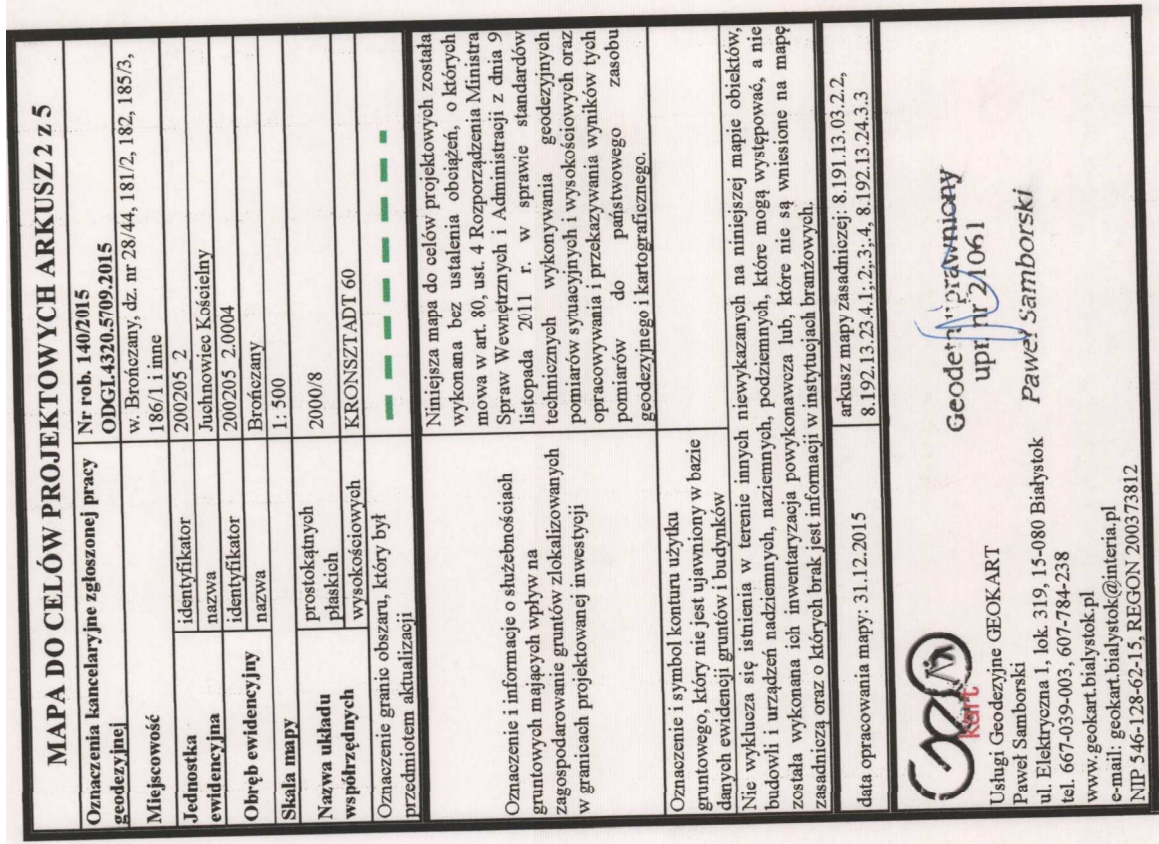 MAPA DO CELÓW PROJEKTOWYCH ARKUSZ 2 z 5
Oznaczenia kancelaryjne zgłoszonej pracy
geodezyjnej
Nr rob. 140/2015
ODGI.4320.5709.2015
Miejscowość
w. Brończany, dz. nr 28/44, 181/2, 182, 185/3,
186/1 i inne
Jednostka
ewidencyjna
identyfikator
200205_2
nazwa
Juchnowiec Kościelny
Obręb ewidencyjny
identyfikator
200205_2.0004
nazwa
Brończany
Skala mapy
1: 500
Nazwa układu
współrzędnych
prostokątnych
płaskich
2000/8
wysokościowych
KRONSZTADT 60
Oznaczenie granic obszaru, który był
przedmiotem aktualizacji
Oznaczenie i informacje o służebnościach
gruntowych mających wpływ na
zagospodarowanie gruntów zlokalizowanych
w granicach projektowanej inwestycji
Niniejsza mapa do celów projektowych została
wykonana bez ustalenia obciążeń, o których
mowa w art. 80, ust. 4 Rozporządzenia Ministra
Spraw Wewnętrznych i Administracji z dnia 9
listopada 2011 r. w sprawie standardów
technicznych wykonywania geodezyjnych
pomiarów sytuacyjnych i wysokościowych oraz
opracowywania i przekazywania wyników tych
pomiarów do państwowego zasobu
geodezyjnego i kartograficznego.
Oznaczenie i symbol konturu użytku
gruntowego, który nie jest ujawniony w bazie
danych ewidencji gruntów i budynków
Nie wyklucza się istnienia w terenie innych niewykazanych na niniejszej mapie obiektów,
budowli i urządzeń nadziemnych, naziemnych, podziemnych, które mogą występować, a nie
została wykonana ich inwentaryzacja powykonawcza lub, które nie są wniesione na mapę
zasadniczą oraz o których brak jest informacji w instytucjach branżowych.
data opracowania mapy: 31.12.2015
arkusz mapy zasadniczej: 8.191.13.03.2.2,
8.192.13.23.4.1;.2;.3;.4, 8.192.13.24.3.3
kart
Usługi Geodezyjne GEOKART
Paweł Samborski
ul. Elektryczna 1, lok. 319, 15-080 Białystok
tel. 667-039-003, 607-784-238
www.geokart.bialystok.pl
e-mail: geokart.bialystok@interia.pl
NIP 546-128-62-15, REGON 200373812
Geodeta uprawniony
upr. nr 21061
Paweł Samborski